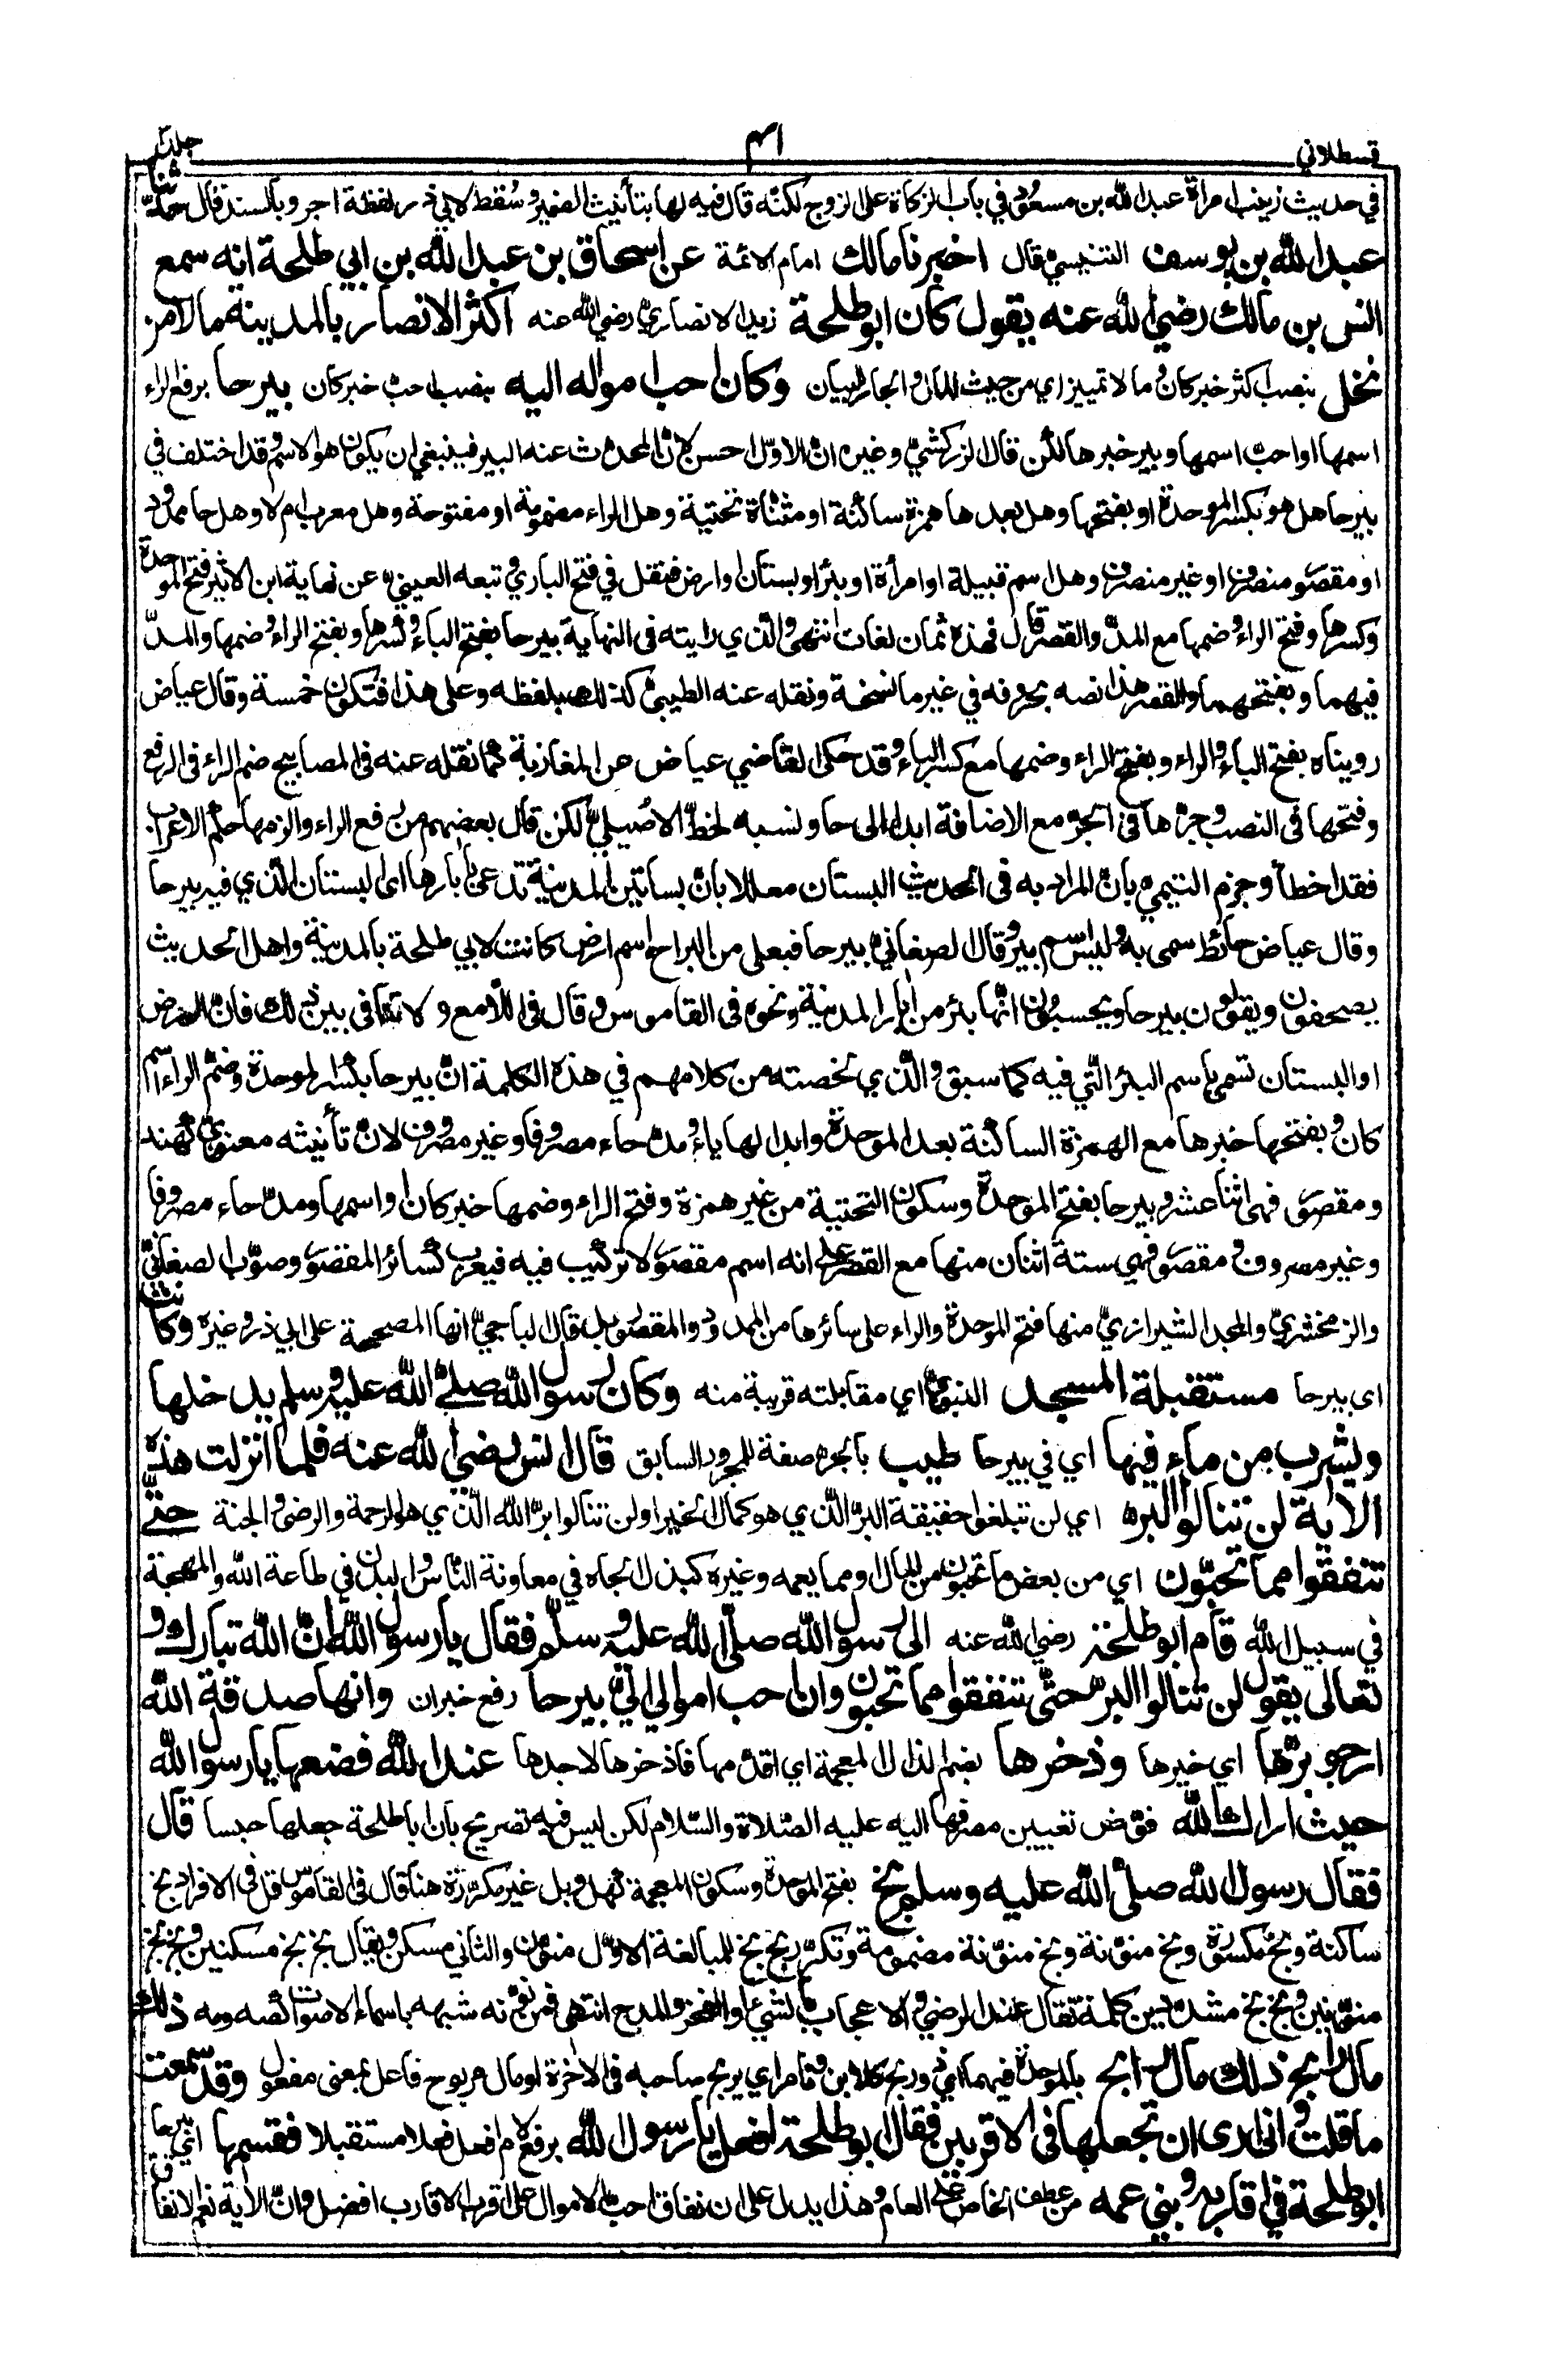 قسطلاني
٤١
جلد٣
في حديث زينب امرأة عبدالله بن مسعود في باب الزكاة على الزوج لكنه قال فيه لها بتأنيث الضمير وسقط لابي ذر لفظة اجر وبالسند قال حدثنا
عبدالله بن يوسف التنيسي قال اخبرنا مالك امام الائمة عن اسحاق بن عبدالله بن ابي طلحة انه سمع
انس بن مالك رضي الله عنه يقول كان ابوطلحة زيد الانصاري رضي الله عنه اكثر الانصار بالمدينة مالا من
نخل بنصب اكثر خبر كان ومالا تمييز اي من حيث المال والجار للبيان وكان احب امواله اليه بنصب احب خبر كان بيرحا برفع الراء
اسمها او احب اسمها وبير خبرها لكن قال الزركشي وغيره ان الاول احسن لان المحدث عنه البير فينبغي ان يكون هو الاسم وقد اختلف في
بيرحا هل هو بكسر الموحدة او بفتحها وهل بعدها همزة ساكنة او مثناة تحتية وهل الراء مضمومة او مفتوحة وهل معرب ام لا وهل حا ممدود
او مقصور منصرف او غير منصرف وهل اسم قبيلة او امرأة او بئر او بستان او ارض فنقل في فتح الباري وتبعه العيني عن نهاية ابن الاثير فتح الموحدة
وكسرها وفتح الراء وضمها مع المد والقصر قال فهذه ثمان لغات انتهى والذي رايته في النهاية بيرحا بفتح الباء وكسرها وبفتح الراء وضمها والمد
فيهما وبفتحهما والقصر هذا نصه بحروفه في غير ما نسخة ونقله عنه الطيبي كذلك بلفظه وعلى هذا فتكون خمسة وقال عياض
رويناه بفتح الباء والراء وبفتح الراء وضمها مع كسر الباء وقد حكى القاضي عياض عن المغاربة كما نقله عنه في المصابيح ضم الراء في الرفع
وفتحها في النصب وجرها في الجر مع الاضافة ابدا الى حا ونسبه لخط الاصيلي لكن قال بعضهم من رفع الراء والزمها حكم الاعراب
فقد اخطأ وجزم التيمي بان المراد به في الحديث البستان معللا بان بساتين المدينة تدعى بآبارها اى البستان الذي فيه بيرحا
وقال عياض حائط سمى به وليس اسم بير وقال الصغاني بيرحا فيعلى من البراح اسم ارض كانت لابي طلحة بالمدينة واهل الحديث
يصحفون ويقولون بيرحا ويحسبون انها بئر من آبار المدينة ونحوه في القاموس وقال في اللامع ولا تنافى بين ذلك فان الارض
او البستان تسمى باسم البئر التي فيه كما سبق والذي لخصته من كلامهم في هذه الكلمة ان بيرحا بكسر الموحدة وضم الراء اسم
كان وبفتحها خبرها مع الهمزة الساكنة بعد الموحدة وابدالها ياء ومد حاء مصروفا وغير مصروف لان تأنيثه معنوي كهند
ومقصور فهى اثنا عشر وبيرحا بفتح الموحدة وسكون التحتية من غير همزة وفتح الراء وضمها خبر كان او اسمها ومد حاء مصروفا
وغير مصروف ومقصور فهي ستة اثنان منها مع القصر على انه اسم مقصور لا تركيب فيه فيعرب كسائر المقصور وصوب الصغاني
والزمخشري والمجد الشيرازي منها فتح الموحدة والراء على سائرها من الممدود والمقصور بل قال الباجي انها المصححة على ابي ذر وغيره وكانت
اى بيرحا مستقبلة المسجد النبوي اي مقابلته قريبة منه وكان رسول الله صلى الله عليه وسلم يدخلها
ويشرب من ماء فيها اي في بيرحا طيب بالجر صفة للمجرور السابق قال انس رضي الله عنه فلما انزلت هذه
الاية لن تنالوا البر اي لن تبلغوا حقيقة البر الذي هو كمال الخير او لن تنالوا بر الله الذي هو الرحمة والرضى والجنة حتى
تنفقوا مما تحبون اي من بعض ما تحبون من المال او مما يعمه وغيره كبذل الجاه في معاونة الناس والبدن في طاعة الله والمهجة
في سبيل الله قام ابوطلحة رضي الله عنه الى رسول الله صلى الله عليه وسلم فقال يا رسول الله ان الله تبارك و
تعالى يقول لن تنالوا البر حتى تنفقوا مما تحبون وان احب اموالي الي بيرحا رفع خبر ان وانها صدقة الله
ارجو برها اي خيرها وذخرها بضم الذال المعجمة اي اقدمها فاذخرها لاجدها عند الله فضعها يا رسول الله
حيث اراك الله فوض تعيين مصرفها اليه عليه الصلاة والسلام لكن ليس فيه تصريح بان اباطلحة جعلها حبسا قال
فقال رسول الله صلى الله عليه وسلم بخ بفتح الموحدة وسكون المعجمة كهل وبل غير مكررة هنا قال في القاموس قل في الافراد بخ
ساكنة وبخ مكسورة وبخ منونة وبخ منونة مضمومة وتكرر بخ بخ للمبالغة الاول منون والثاني مسكن ويقال بخ بخ مسكنين وبخ بخ
منونين وبخ بخ مشددين كلمة تقال عند الرضى والاعجاب بالشئ او الفخر والمدح انتهى فمن نونه شبهه باسماء الاصوات كصه ومه ذلك
مال رابح ذلك مال رابح بالموحدة فيهما اي ذو ربح كلابن وتامر اي يربح صاحبه في الاخرة او مال مربوح فاعل بمعنى مفعول وقد سمعت
ما قلت واني ارى ان تجعلها في الاقربين فقال ابوطلحة افعل يا رسول الله برفع لام افعل فعلا مستقبلا فقسمها اي بيرحا
ابوطلحة في اقاربه وبني عمه من عطف الخاص على العام وهذا يدل على ان انفاق احب الاموال على اقرب الاقارب افضل وان الاية تعم الانفاق